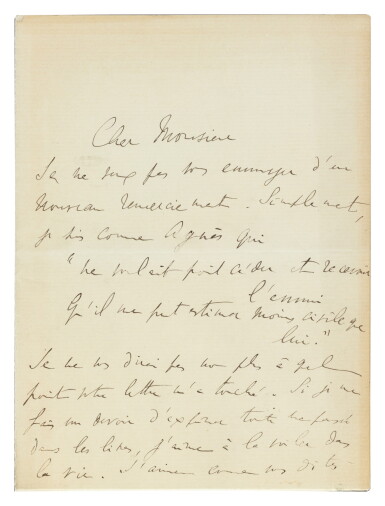 Cher Monsieur
Je ne veux pas vous ennuyer d'un
nouveau remerciement. Simplement,
je suis comme Agnès qui
"ne voulait point céder et recevoir
l'ennui
Qu'il me put estimer moins civile que
lui."
Je ne vous dirai pas non plus à quel
point votre lettre m'a touché. Si je me
fais un devoir d'exprimer toute ma pensée
dans les livres, j'aime à la voiler dans
la vie. J'aime comme vous dites